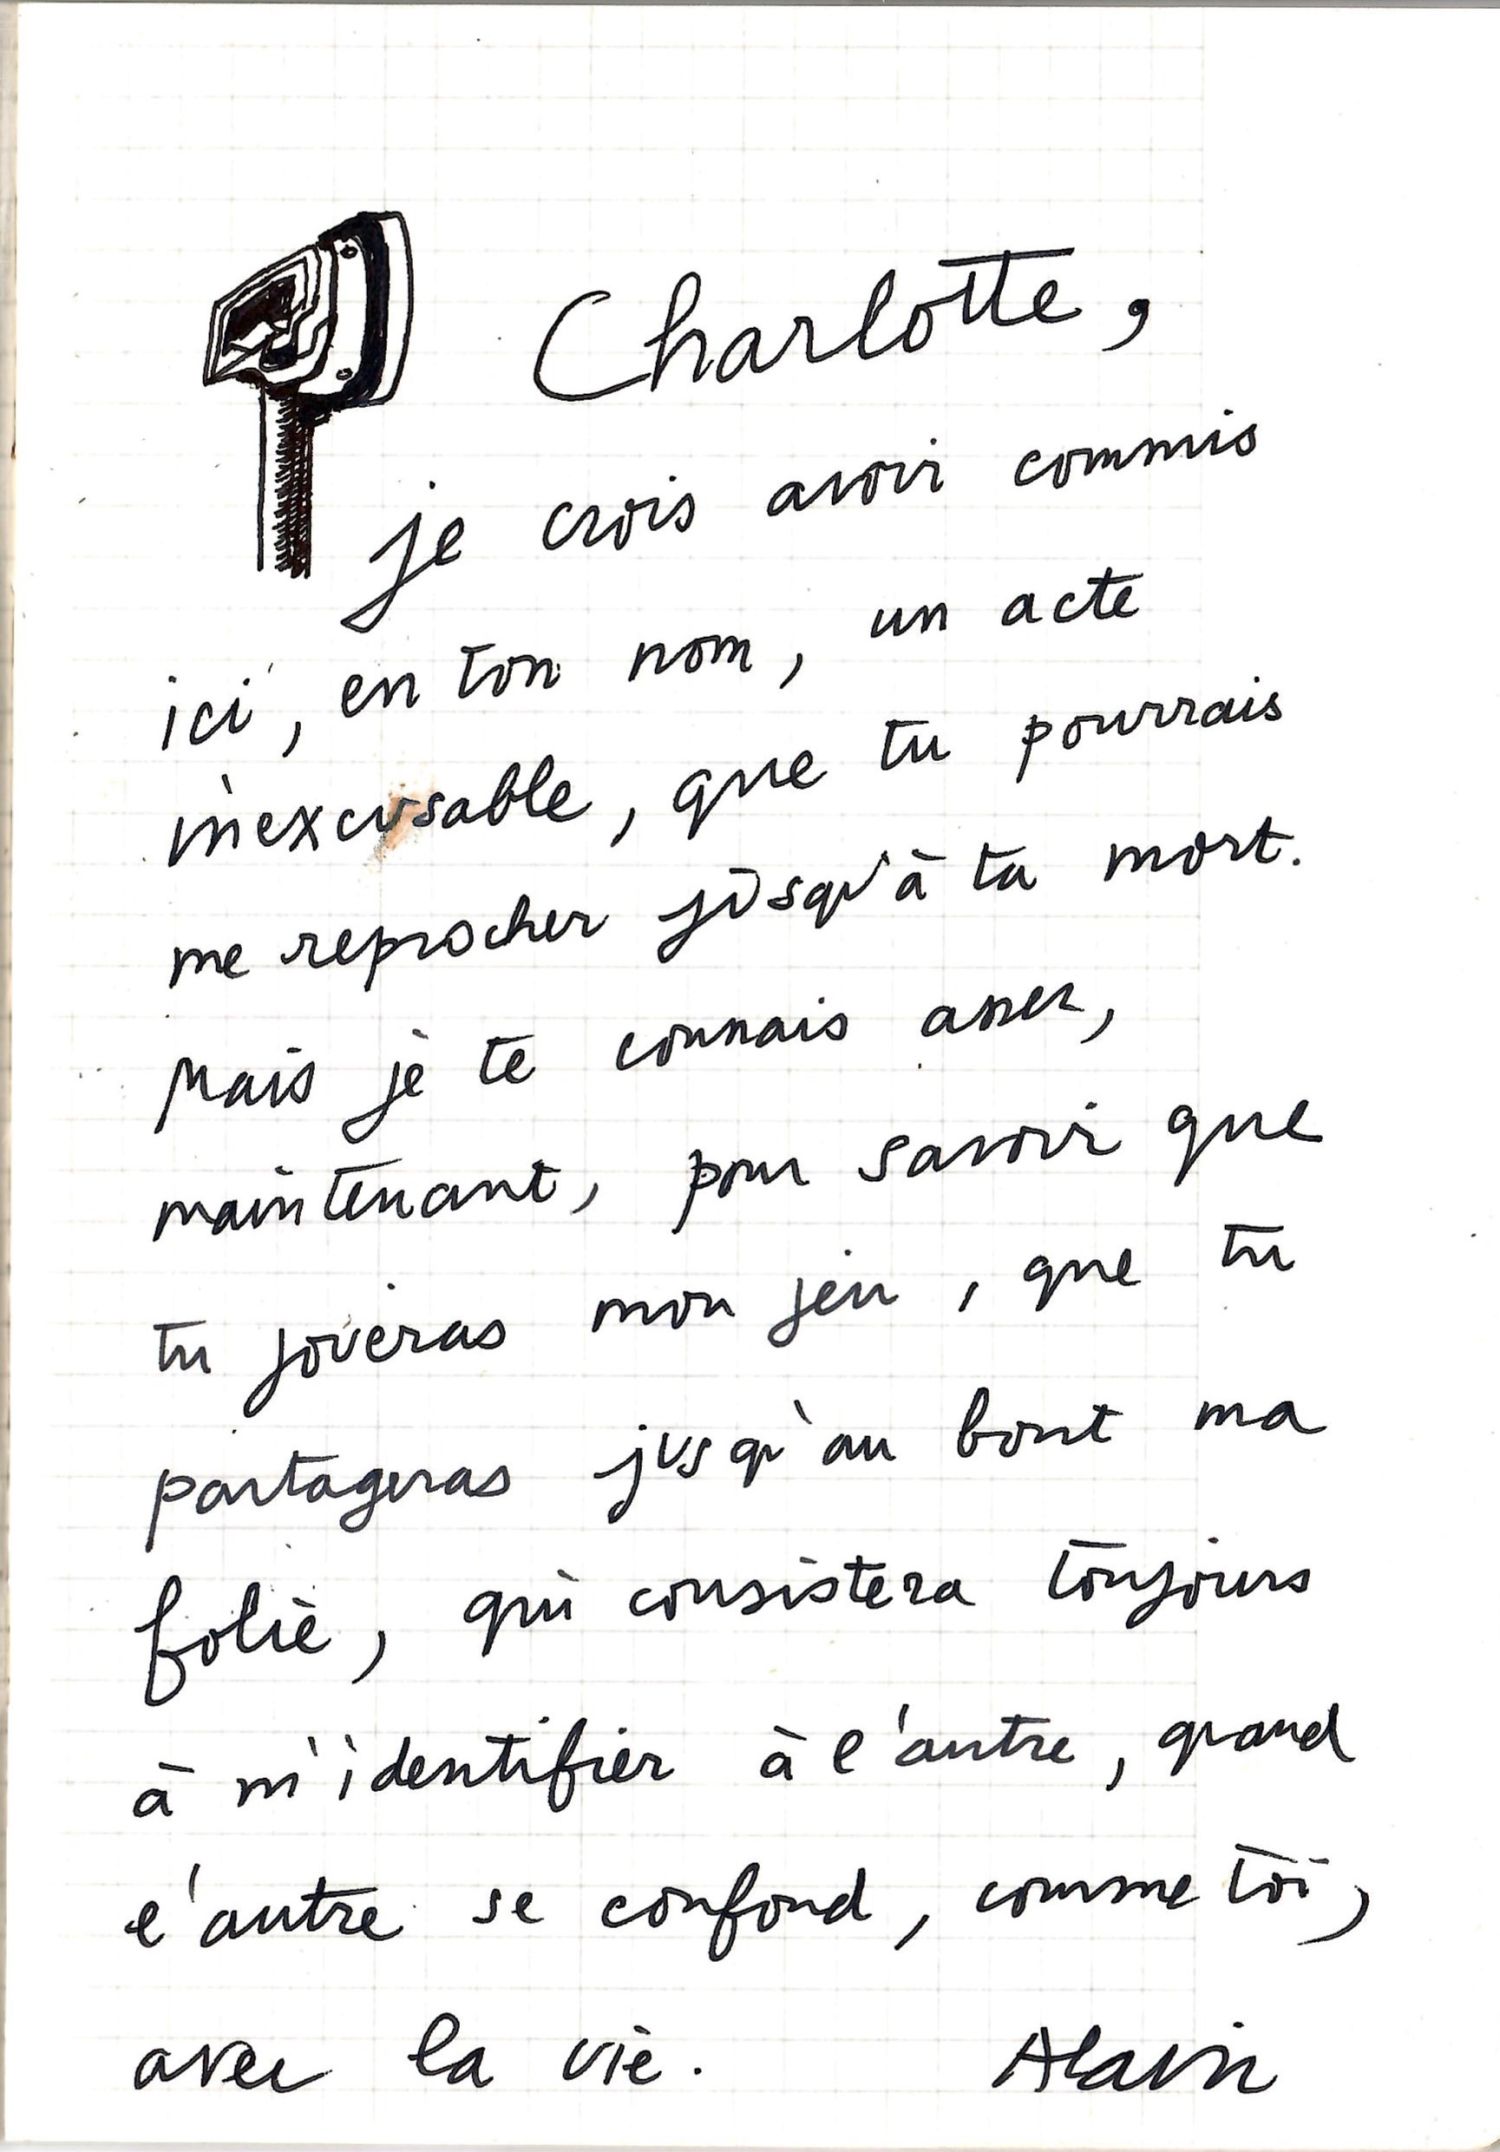 Charlotte,
je crois avoir commis
ici, en ton nom, un acte
inexcusable, que tu pourrais
me reprocher jusqu'à ta mort.
Mais je te connais assez,
maintenant, pour savoir que
tu joueras mon jeu, que tu
partageras jusqu'au bout ma
folie, qui consistera toujours
à m'identifier à l'autre, quand
l'autre se confond, comme toi,
avec la vie. Alain